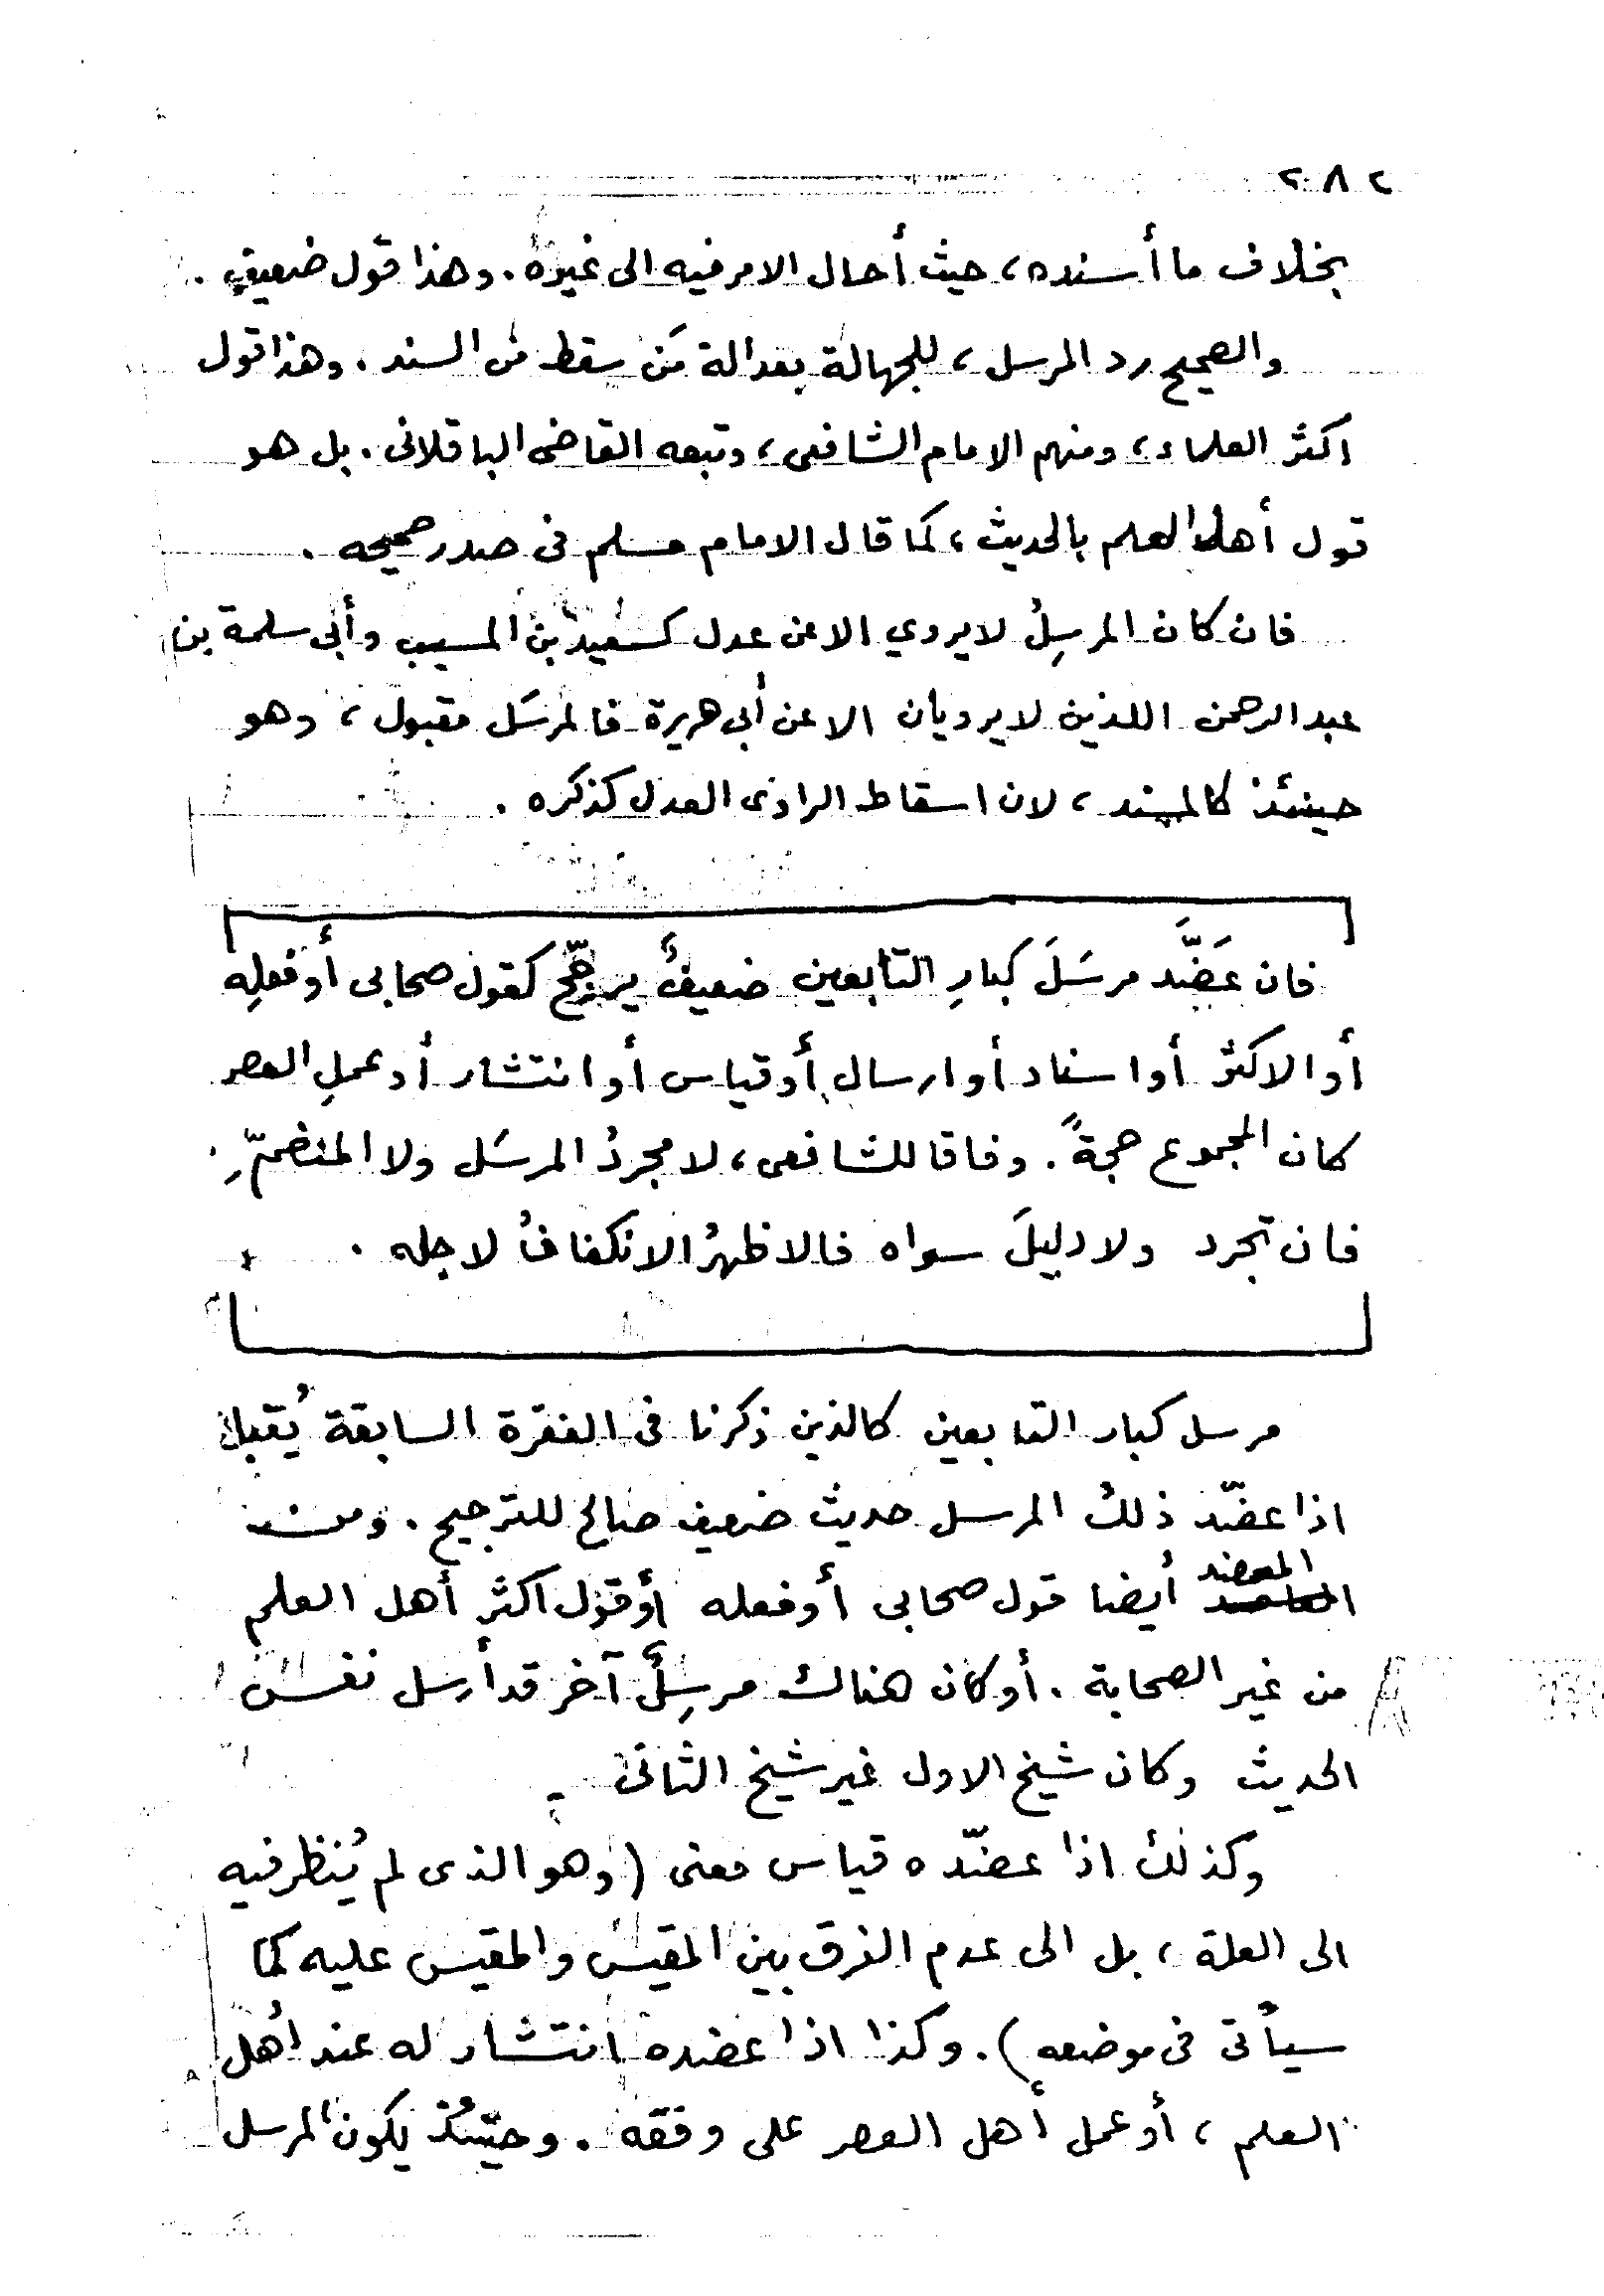 ٢٨٢
بخلاف ما أسنده، حيث أحال الامر فيه الى غيره. وهذا قول ضعيف.
والصحيح رد المرسل، للجهالة بعدالة مَن سقط من السند. وهذا قول
اكثر العلماء، ومنهم الامام الشافعى، وتبعه القاضى الباقلانى. بل هو
قول أهل العلم بالحديث، كما قال الامام مسلم فى صدر صحيحه.
فان كان المرسِلُ لا يروي الا عن عدل كسعيد بن المسيب وأبى سلمة بن
عبد الرحمن اللذين لا يرويان الا عن أبى هريرة فالمرسَل مقبول، وهو
حينئذ كالمسند، لان اسقاط الراوى العدل كذكره.
فان عَضَّدَ مرسَلَ كبارِ التابعين ضعيفٌ يرجّح كقول صحابى أو فعلِه
أو الاكثرِ أو اسناد أو ارسال أو قياس أو انتشار أو عملِ العصر
كان المجموع حجةً. وفاقا للشافعى، لا مجردُ المرسَل ولا المنضمِّ.
فان تجرد ولا دليلَ سواه فالاظهرُ الانكفافُ لاجله.
مرسل كبار التابعين كالذين ذكرنا فى الفقرة السابقة يُقبل
اذا عضّد ذلك المرسل حديث ضعيف صالح للترجيح. ومن
المعضد أيضا قول صحابى أو فعله أو قول اكثر أهل العلم
من غير الصحابة. أو كان هناك مرسِلٌ آخر قد أرسل نفس
الحديث وكان شيخ الاول غير شيخ الثانى.
وكذلك اذا عضّده قياس معنى (وهو الذى لم يُنظر فيه
الى العلة، بل الى عدم الفرق بين المقيس والمقيس عليه كما
سيأتى فى موضعه). وكذا اذا عضده انتشار له عند أهل
العلم، أو عمل أهل العصر على وفقه. وحينئذ يكون المرسل